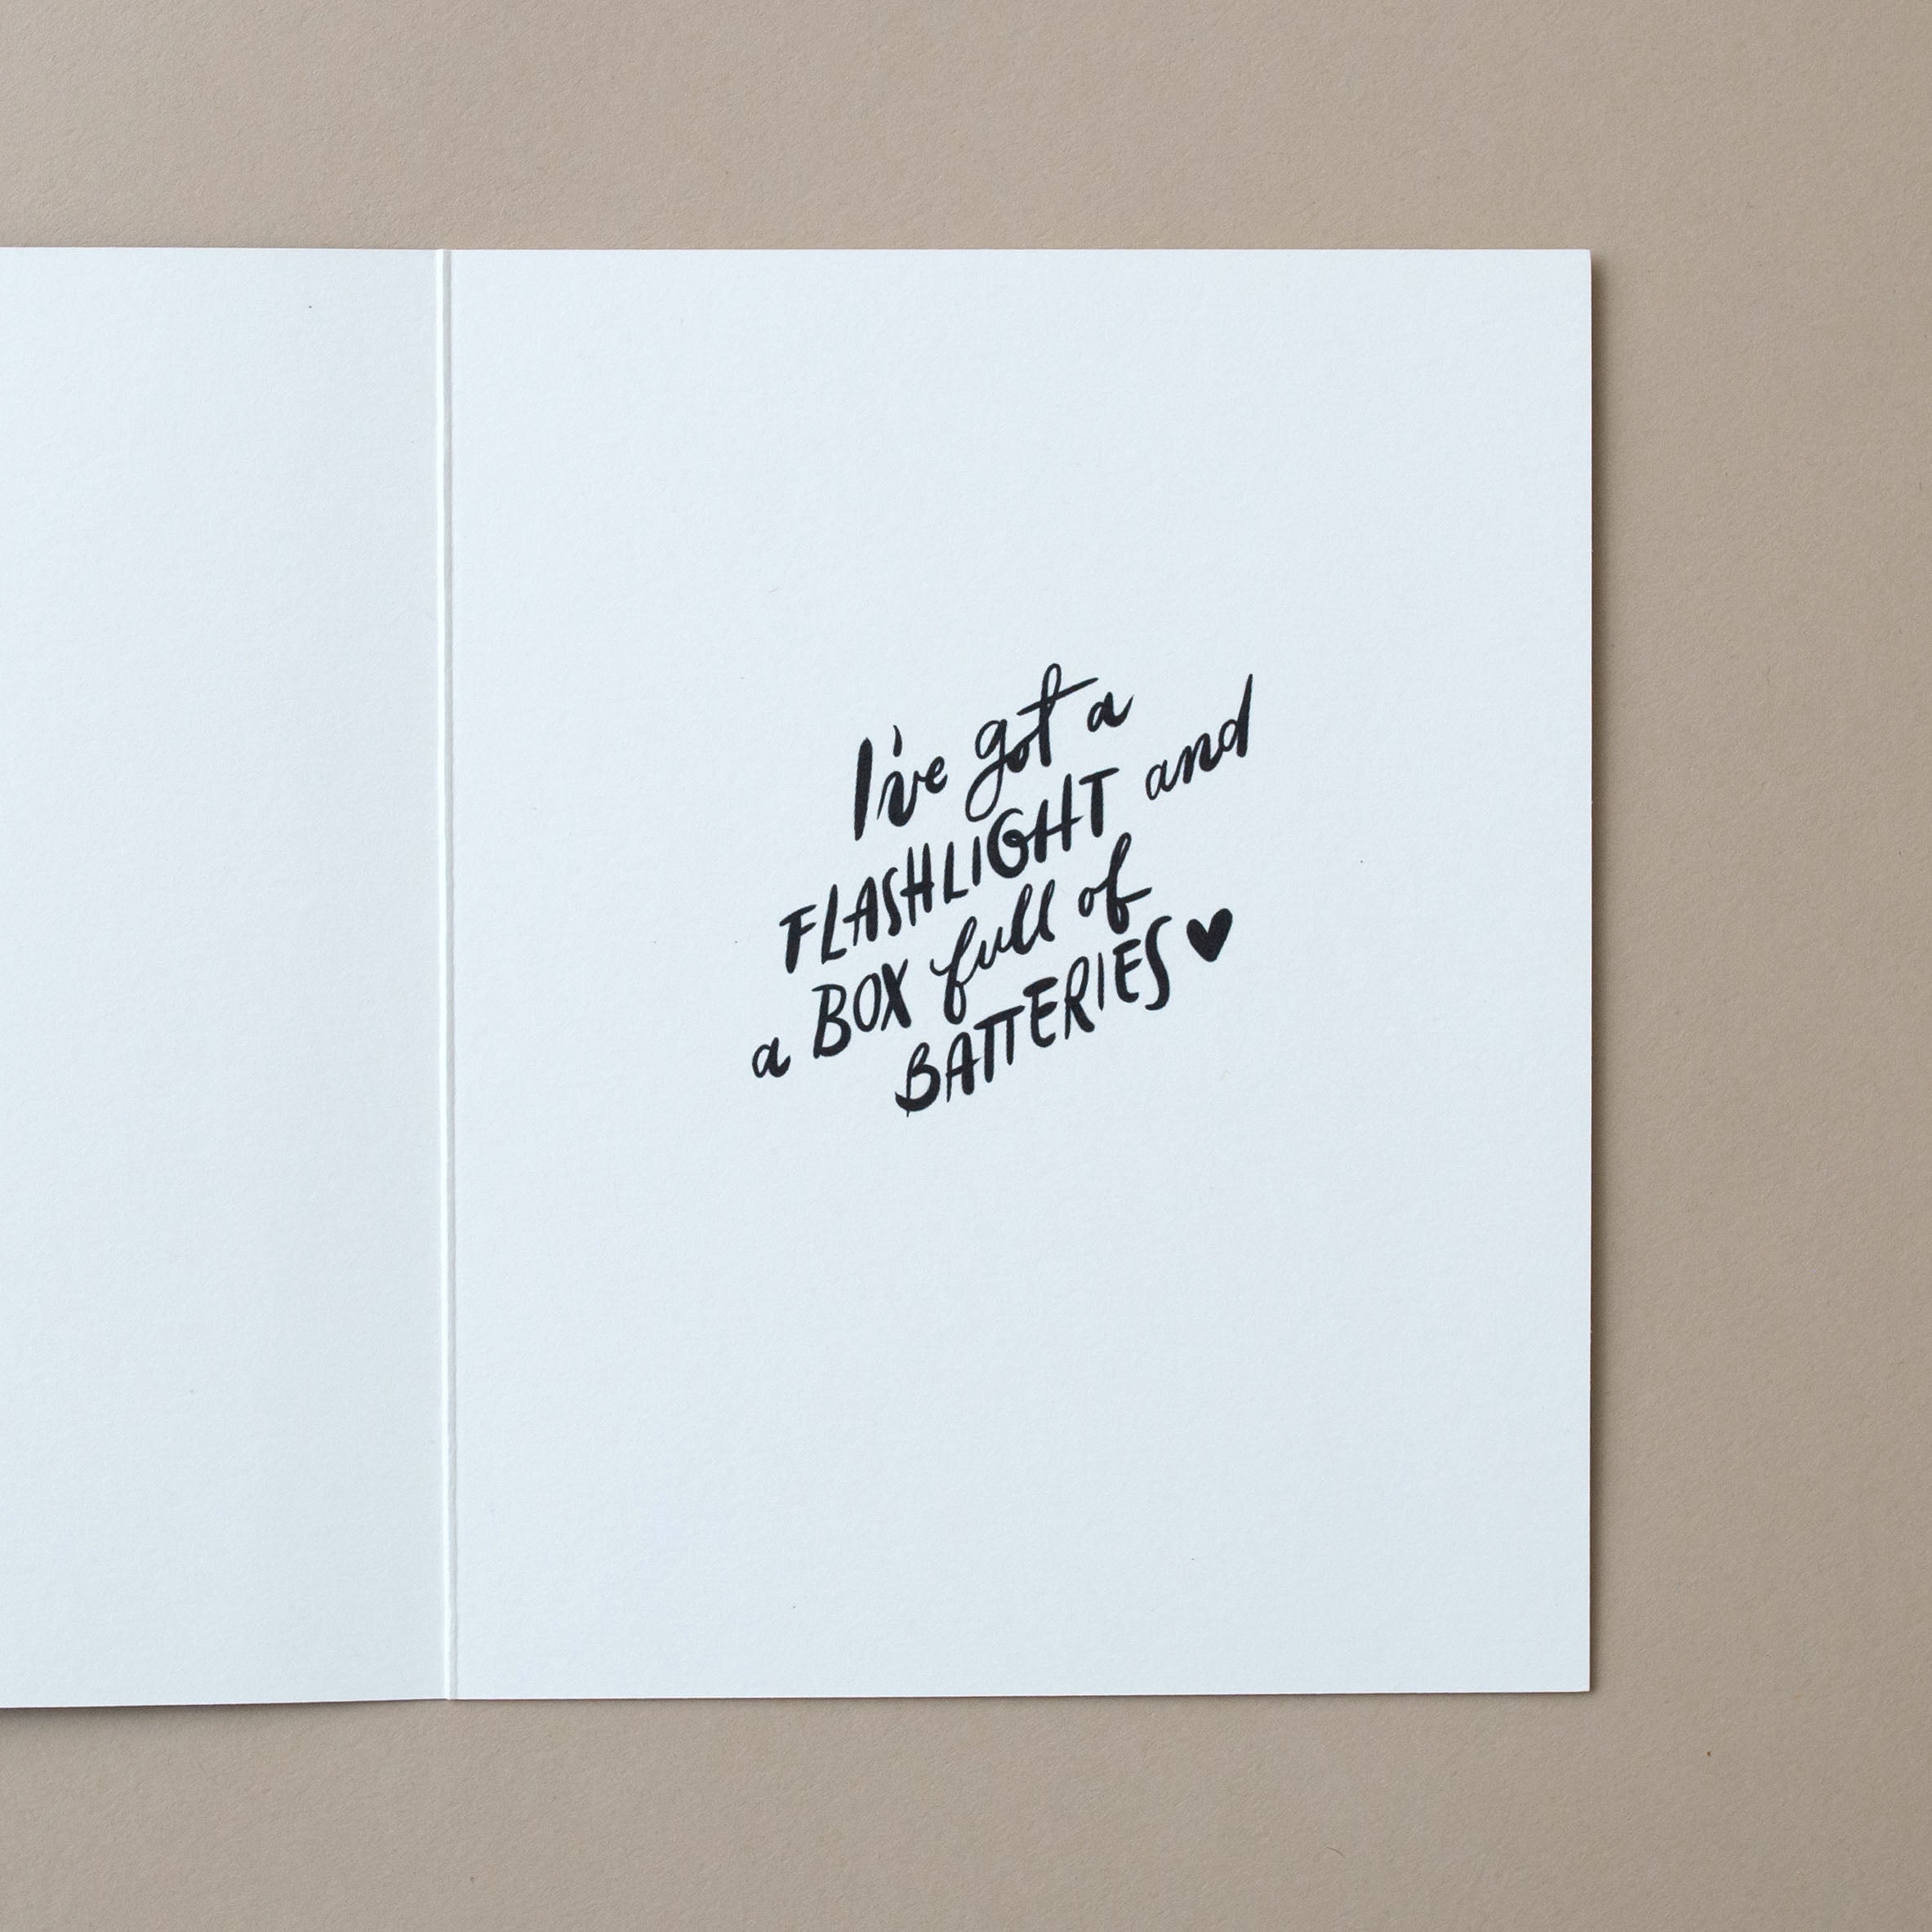 I've got a
FLASHLIGHT and
a BOX full of
BATTERIES♥